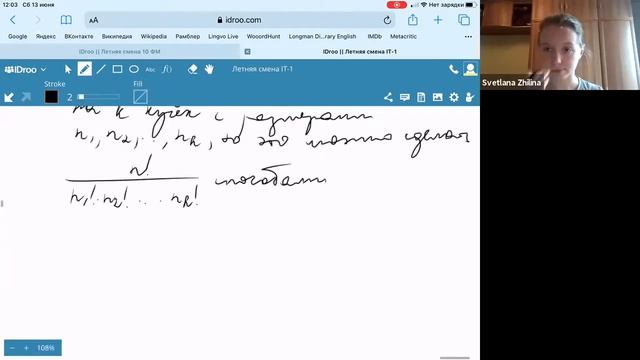 12:03 Сб 13 июня
Нет зарядки
AA
idroo.com
Google Яндекс ВКонтакте Википедия Wikipedia Рамблер Lingvo Live WooordHunt Longman Di...rary English IMDb Metacritic
IDroo || Летняя смена 10 ФМ
IDroo || Летняя смена IT-1
IDroo
Abc
f(x)
Летняя смена IT-1
Stroke
Fill
2
на k кучек с размерами
n₁, n₂, ..., nₖ, то это можно сделать
n!
n₁! · n₂! · ... · nₖ!
способами
108%
Svetlana Zhilina